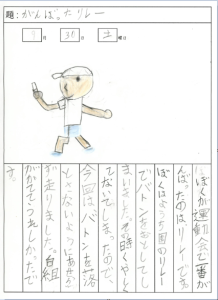 題:がんばったリレー
月30日土曜日
ぼくが運動会で一番が
んばったのはリレーです。
ぼくはようち園のリレー
でバトンをおとしてし
まいました。その時くやしく
てないてしまったので、
今回はバトンを落
とさないようにあせらず
走りました。白組
がかててうれしかったで
す。